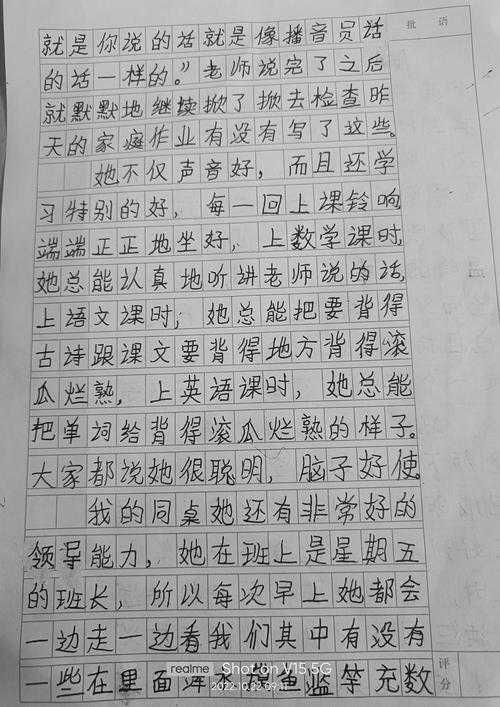 批 语
就是你说的话就是像播音员话
的话一样的。”老师说完了之后
就默默地继续掀了掀去检查昨
天的家庭作业有没有写了这些。
她不仅声音好，而且还学
习特别的好，每一回上课铃响
端端正正地坐好，上数学课时，
她总能认真地听讲老师说的话，
上语文课时；她总能把要背得
古诗跟课文要背得地方背得滚
瓜烂熟，上英语课时，她总能
把单词给背得滚瓜烂熟的样子。
大家都说她很聪明，脑子好使。
我的同桌她还有非常好的
领导能力，她在班上是星期五
的班长，所以每次早上她都会
一边走一边看我们其中有没有
一些在里面浑水摸鱼滥竽充数
评分
realme Shot on V15 5G
2022.10.22 09:11